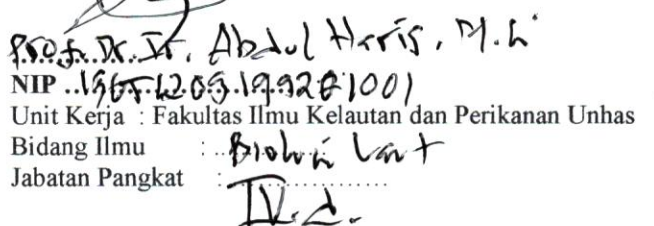 Prof. Dr. Ir. Abdul Haris, M.Si
NIP ..19651209.1992 1001
Unit Kerja : Fakultas Ilmu Kelautan dan Perikanan Unhas
Bidang Ilmu : Biologi Laut
Jabatan Pangkat :
IV.d.